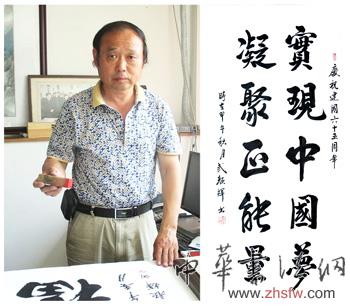 慶祝建國六十五周年
實現中國夢
凝聚正能量
時在甲午秋月武振輝书
中華书法網
www.zhsfw.com